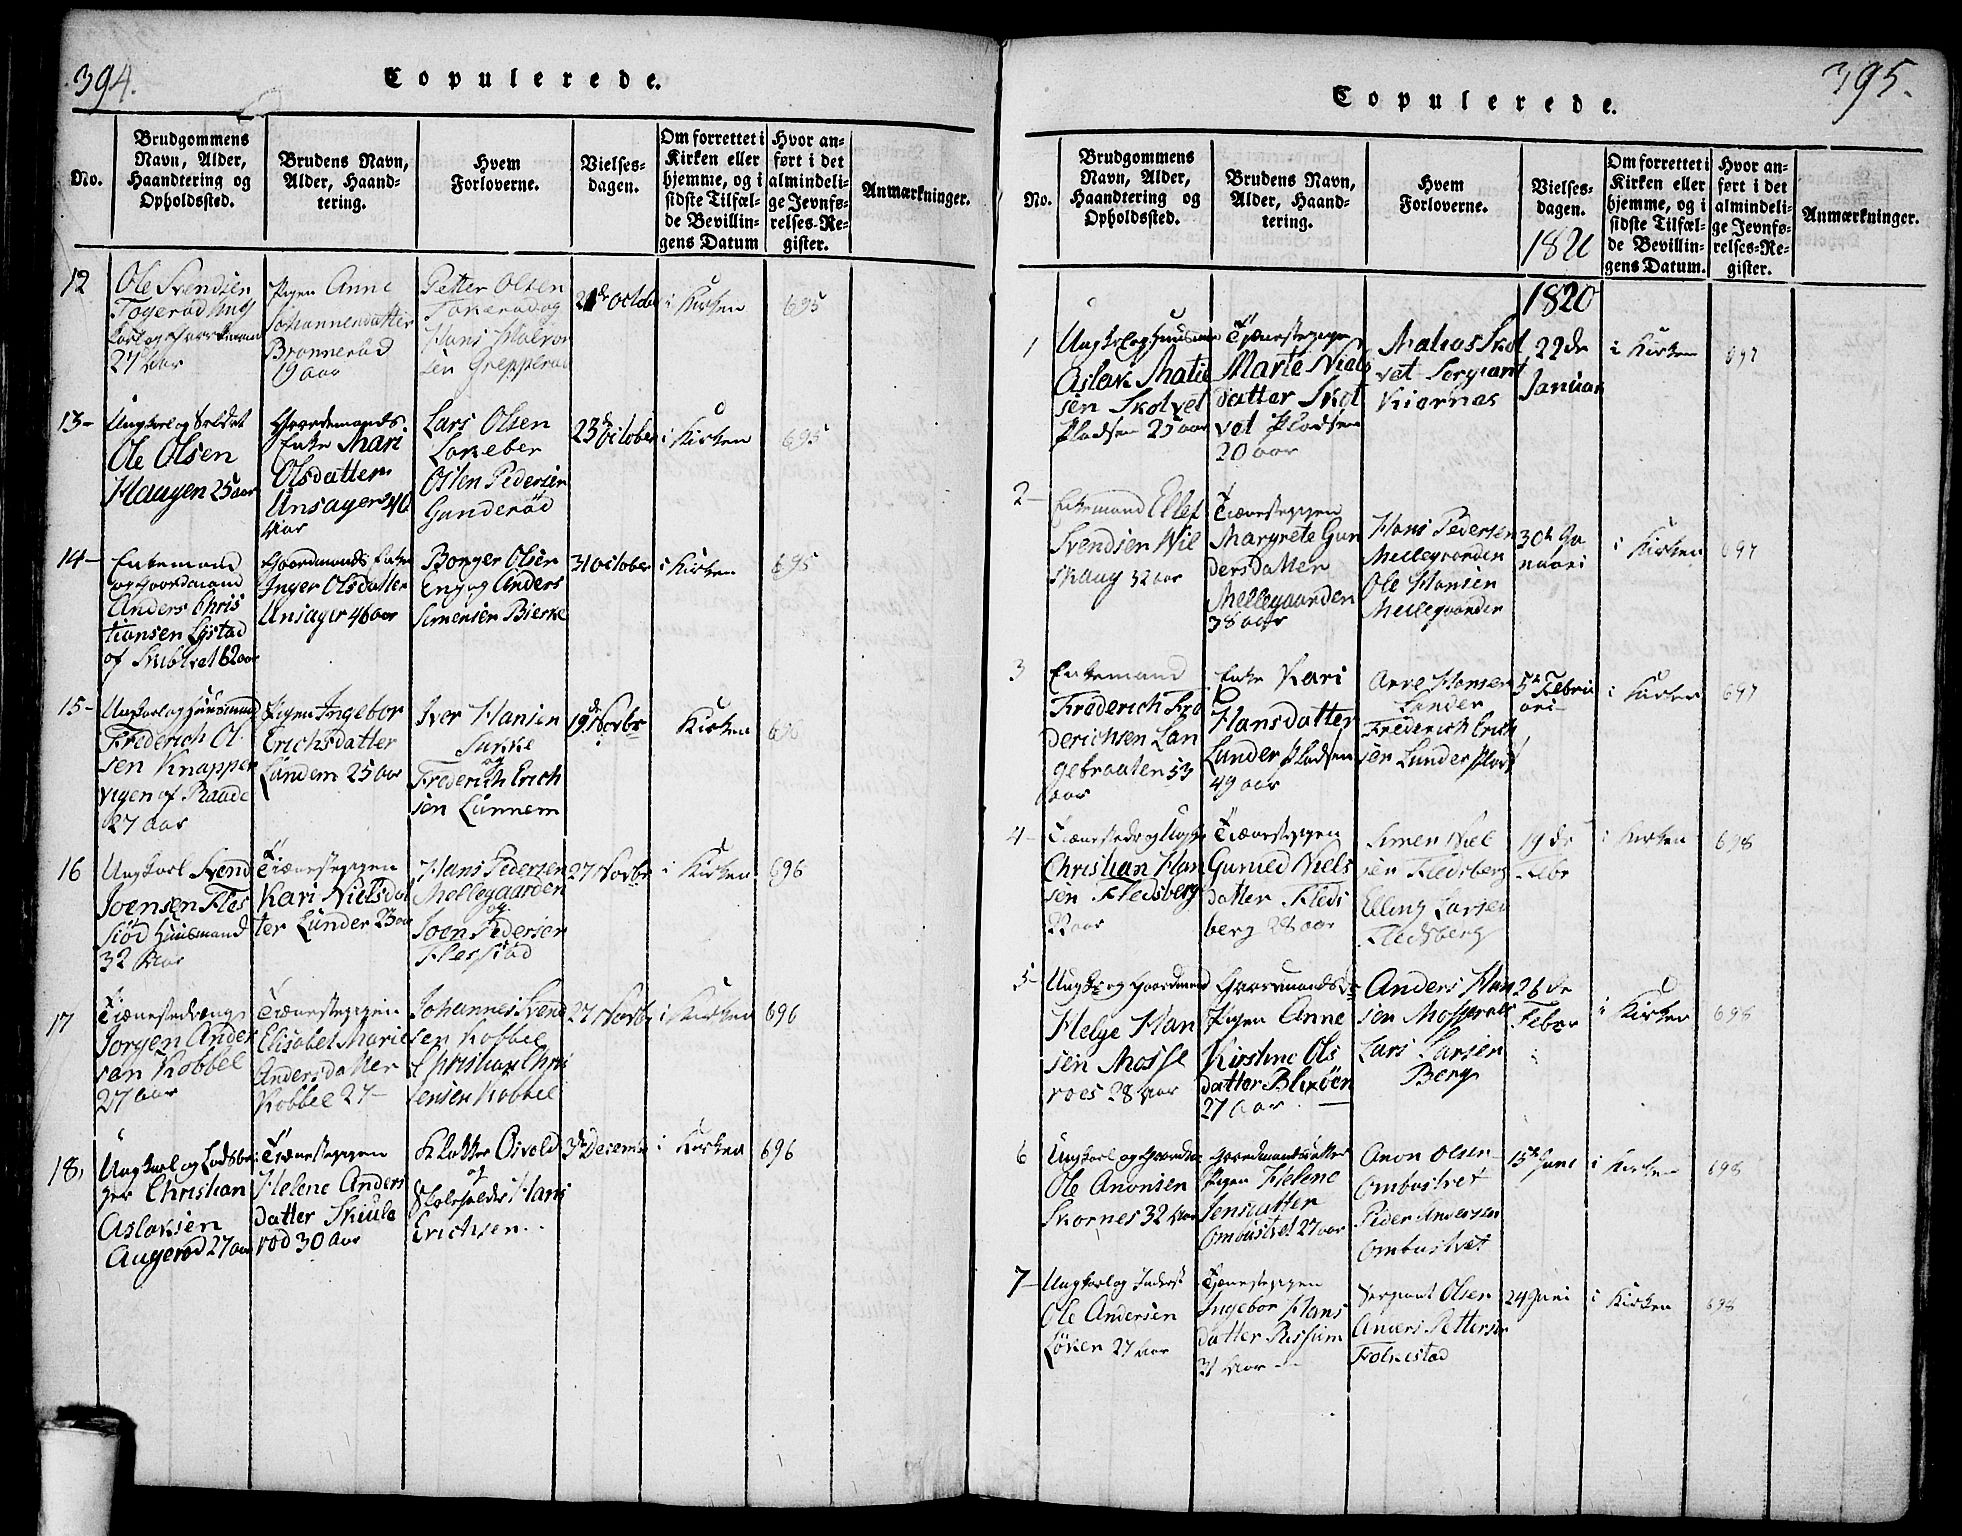 394.
Copulerede.
No.
Brudgommens
Navn, Alder,
Haandtering og
Opholdssted.
Brudens Navn,
Alder, Haand-
tering.
Hvem
Forloverne.
Vielses-
dagen.
Om forrettet i
Kirken eller
hjemme, og i
sidste Tilfæl-
de Bevillin-
gens Datum
Hvor an-
ført i det
almindeli-
ge Jevnfø-
relses-Re-
gister.
Anmærkninger.
12
Ole Svendsen
27 Aar
Pigen Anne
Johannesdatter
Brønnerød
19 aar
Petter Olsen
og
Hans Halvor
sen Grepperød
October
i Kirken
695
13-
Ungkarl og Soldat
Ole Olsen
Haugen 25 aar
Gaardmands
Enke Mari
Olsdatter
Unsager 40
Aar
Lars Olsen
Lokeber
Osten Pedersen
Gunderød
23de October
i Kirken
695
14-
Enkemand
og Gaardmand
Anders Chris
tiansen Lystad
af 62 aar
Gaardmands Enke
Inger Olsdatter
Unsager 46 aar
Borger Olsen
Eng og Anders
Simensen Bierke
31 October
i Kirken
695
15-
Ungkarl og Huusmand
Frederich Ol
sen Knapper
vigen af Raade
27 aar
Pigen Ingebor
Erichsdatter
Lundem 25 aar
Iver Hansen
Sukke
og
Frederich Erich
sen Lunnem
19de Novbr
Kirken
16
Ungkarl Svend
Joensen Fles
siød Huusmand
32 Aar
Tienestepigen
Kari Nielsdat
ter Lunder 23 aar
Hans Pedersen
Mellegaarden
og
Joen Pedersen
Flessiød
27 Novbr
i Kirken
696
17
Tienestedreng
Jorgen Ander
sen Kobbel
27 aar
Tienestepigen
Elisabet Marie
Andersdatter
Kobbel 27-
Johannes Svend
sen Kobbel
Christian Chri
stensen Kobbel
27 Novbr
i Kirken
696
18,
Ungkarl og
Christian
Aslaksen
Augerød 27 aar
Tienestepigen
Helene Anders
datter Skule
rod 30 Aar
Klokker Osvald
og
Skoleholder Hans
Erichsen..
3de Decemb
i Kirken
696
395.
Copulerede.
No.
Brudgommens
Navn, Alder,
Haandtering og
Opholdssted.
Brudens Navn,
Alder, Haand-
tering.
Hvem
Forloverne.
Vielses-
dagen.
1820
Om forrettet i
Kirken eller
hjemme, og i
sidste Tilfæl-
de Bevillin-
gens Datum.
Hvor an-
ført i det
almindeli-
ge Jevnfø-
relses-Re-
gister.
Anmærkninger.
1820
1
Ungk og Huusm
Aslak Matia
sen Skolvet
Pladsen 25 aar
Tjenestepigen
Marte Niels
datter Skol
vet Pladsen
20 aar
Matias Skol
vet Sergiant
Kiernes
22de
Januar
i Kirken
697
2-
Enkemand Ellef
Svendsen Wil
skaug 32 aar
Tienestepigen
Margrete Gun
dersdatter
Mellegaarden
38 aar
Hans Pedersen
Mellegaarden
Ole Hansen
Mellegaarden
30te Ja
nuari
i Kirken
697
3
Enkemand
Frederich Fre
derichsen Lan
gebraaten 53
aar
Enke Kari
Hansdatter
Lunder Pladsen
49 aar
Arve Hansen
Lunder
Frederich Erich
sen Lunder Plads
5te Febru
ari
i Kirken
697
4-
Tienestedr og Ungk
Christian Han
sen Fledsberg
22 aar
Tienestepigen
Guruld Niels
datter Fleds
berg 28 aar
Simen Niel
sen Fledsberg
Elling Larsen
Fledsberg
19 de
Febr
i Kirken
698
5-
Ungk og Gaardmand
Helge Han
sen Mosse
roes 28 Aar
Gaardmands Dr
Pigen Anne
Kirstine Ols
datter Blixøen
27 Aar
Anders Han
sen Mosseroes
Lars Larsen
Berg
26 de
Febr
i Kirken
698
6
Ungkarl og Gaardm
Ole Anonsen
Skornes 32 Aar
Gaardmandsdatter
Pigen Helene
Jensdatter
Ombustvet 27 aar
Anon Olsen
Ombustvet
Peder Andersen
Ombustvet
15de Juni
i Kirken
698
7-
Ungkarl og Inderst
Ole Andersen
Løken 27 Aar
Tjenestepigen
Ingebor Hans
datter Ressum
31 Aar
Sergeant Olsen
Anders Petterse
Folkestad
24 Juni
i Kirken
698